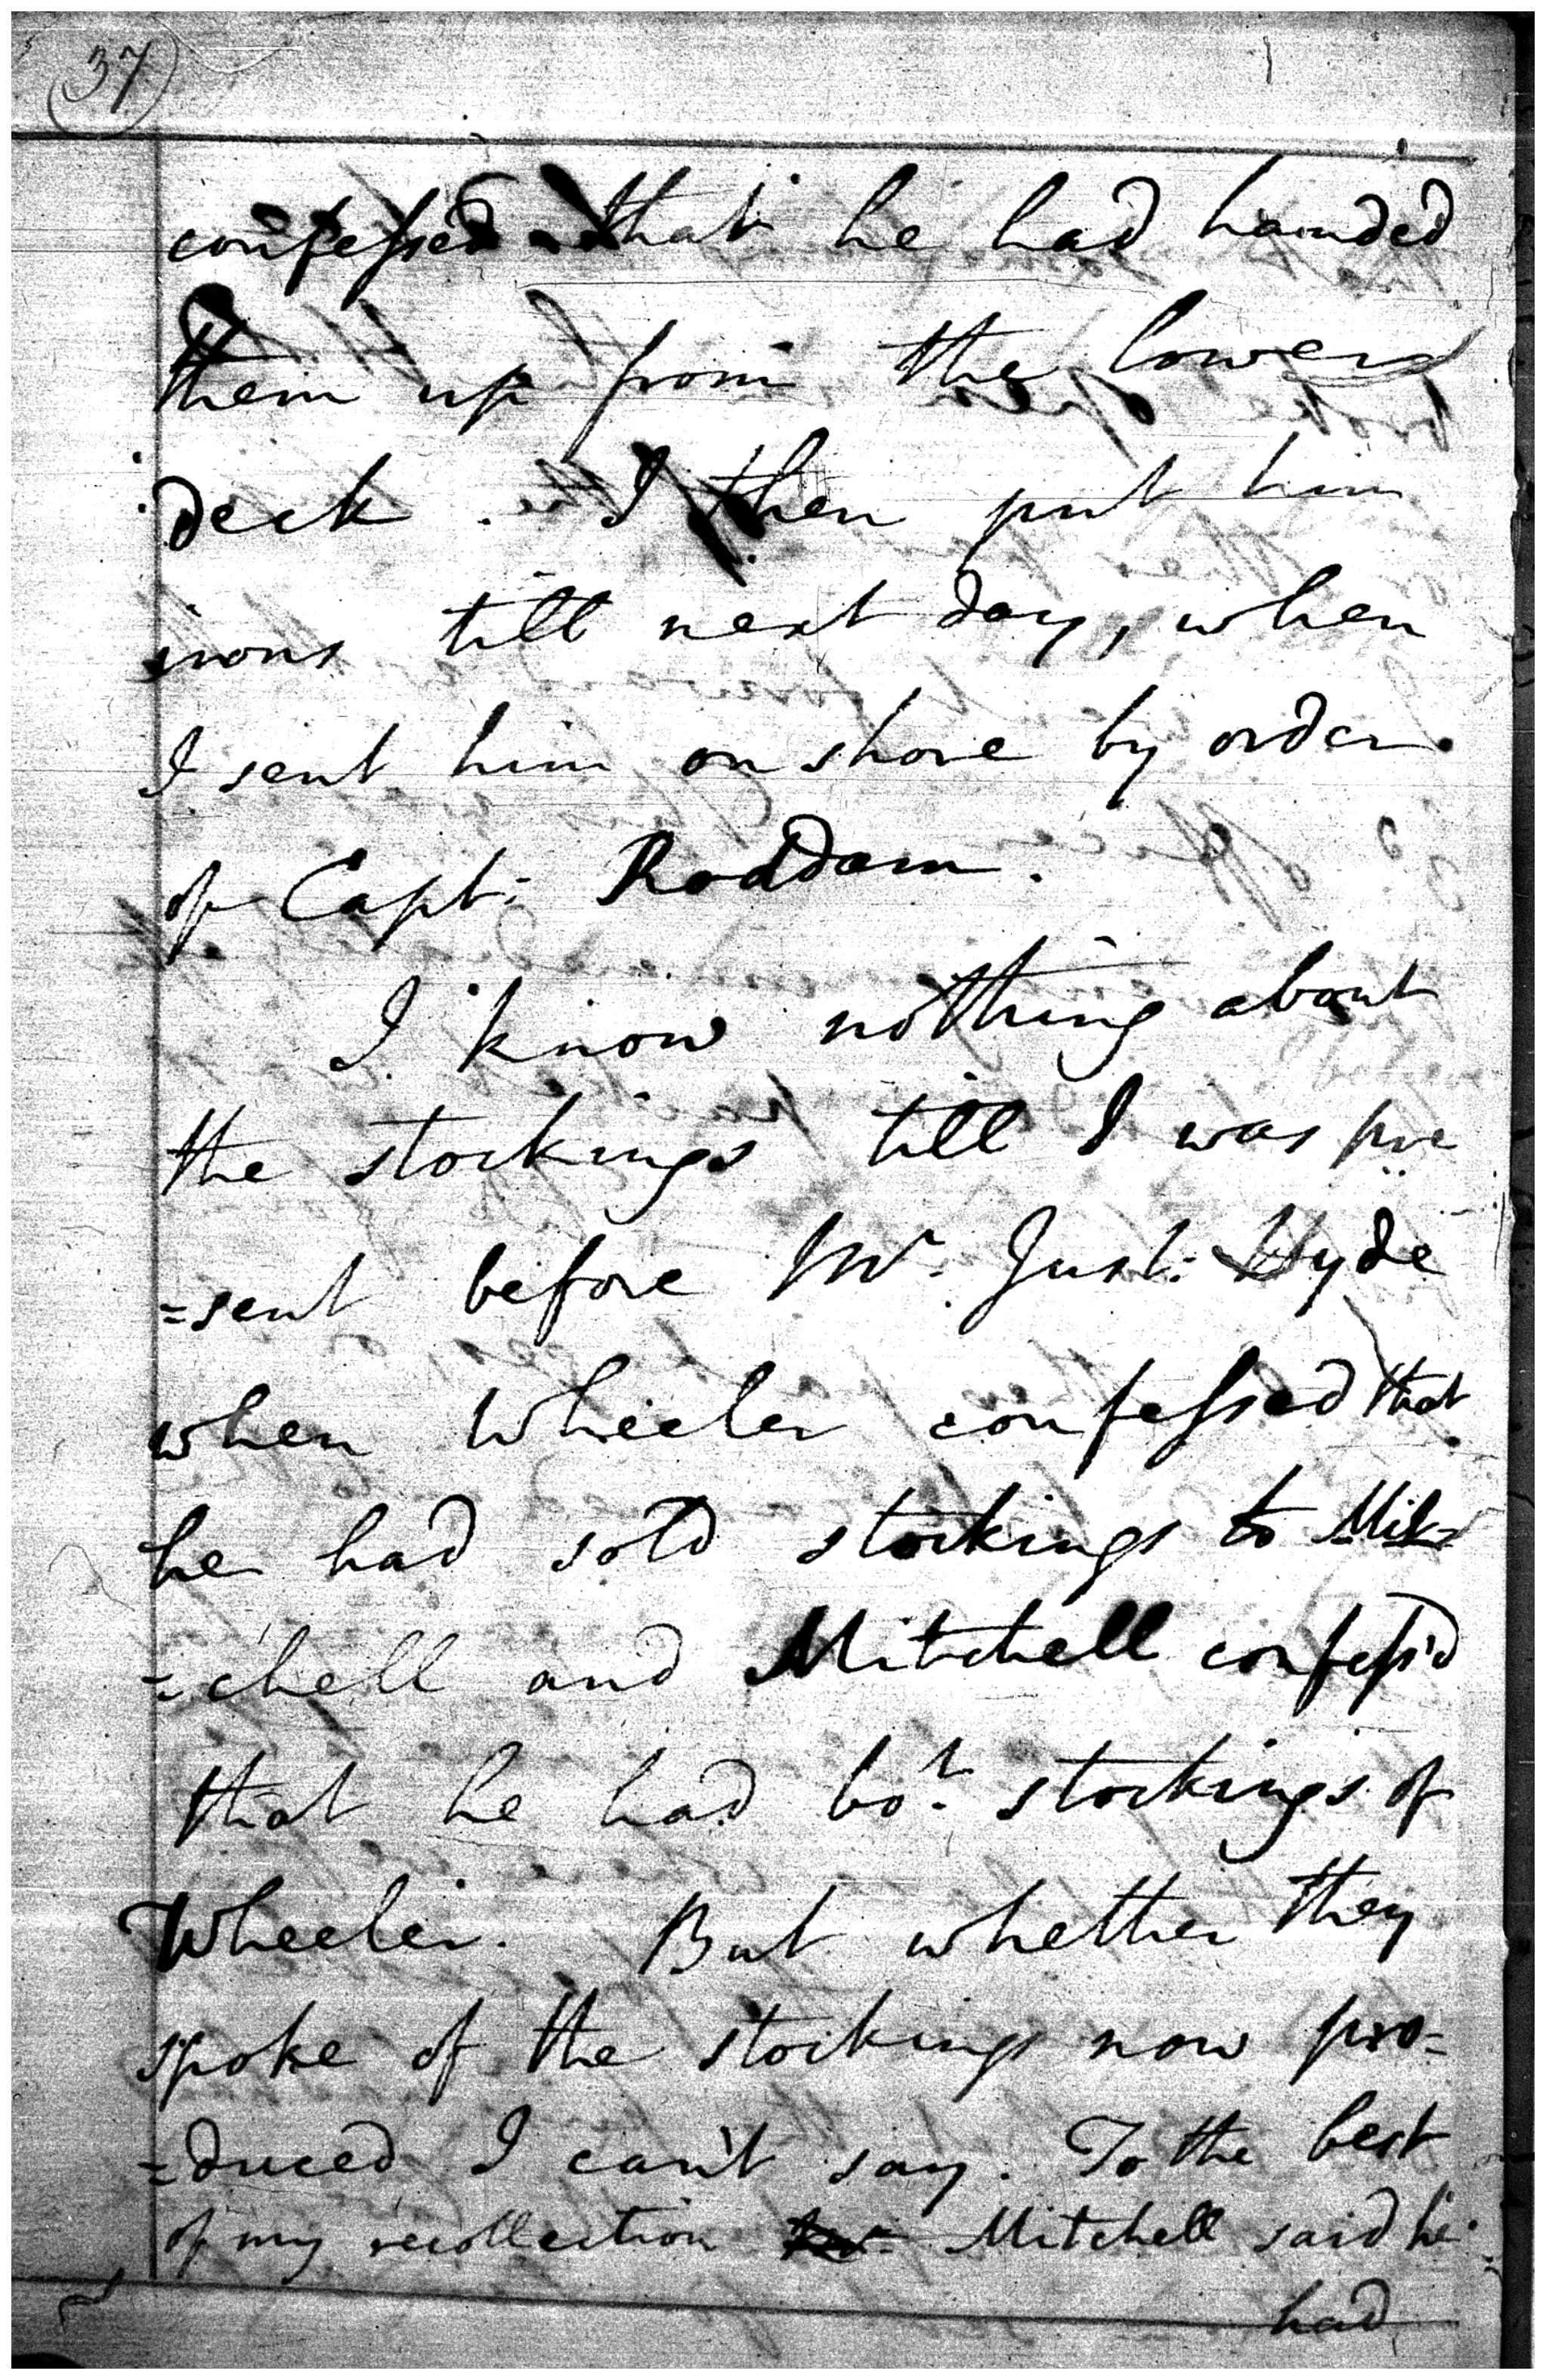 37
confessed that he had handed
them up from the lower
deck. I then put him
irons till next day, when
I sent him on shore by order
of Capt: Roddam.
I know nothing about
the stockings till I was pre
=sent before Mr. Just: Hyde
when Wheeler confessed that
he had sold stockings to Mit=
=chell and Mitchell confess'd
that he had bot. stockings of
Wheeler. But whether they
spoke of the stockings now pro-
=duced I can't say. To the best
of my recollection Mitchell said he
had